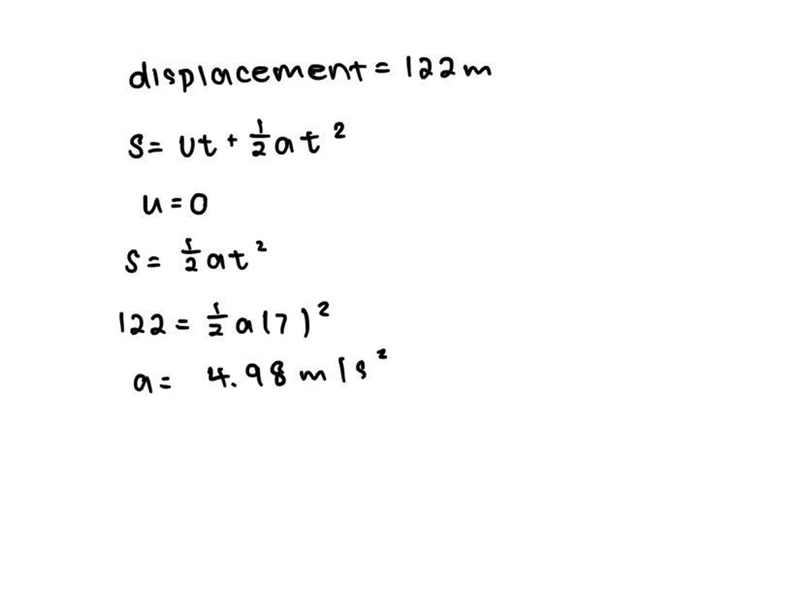 displacement = 122m
s = ut + ½at²
u = 0
s = ½at²
122 = ½a(7)²
a = 4.98 m/s²